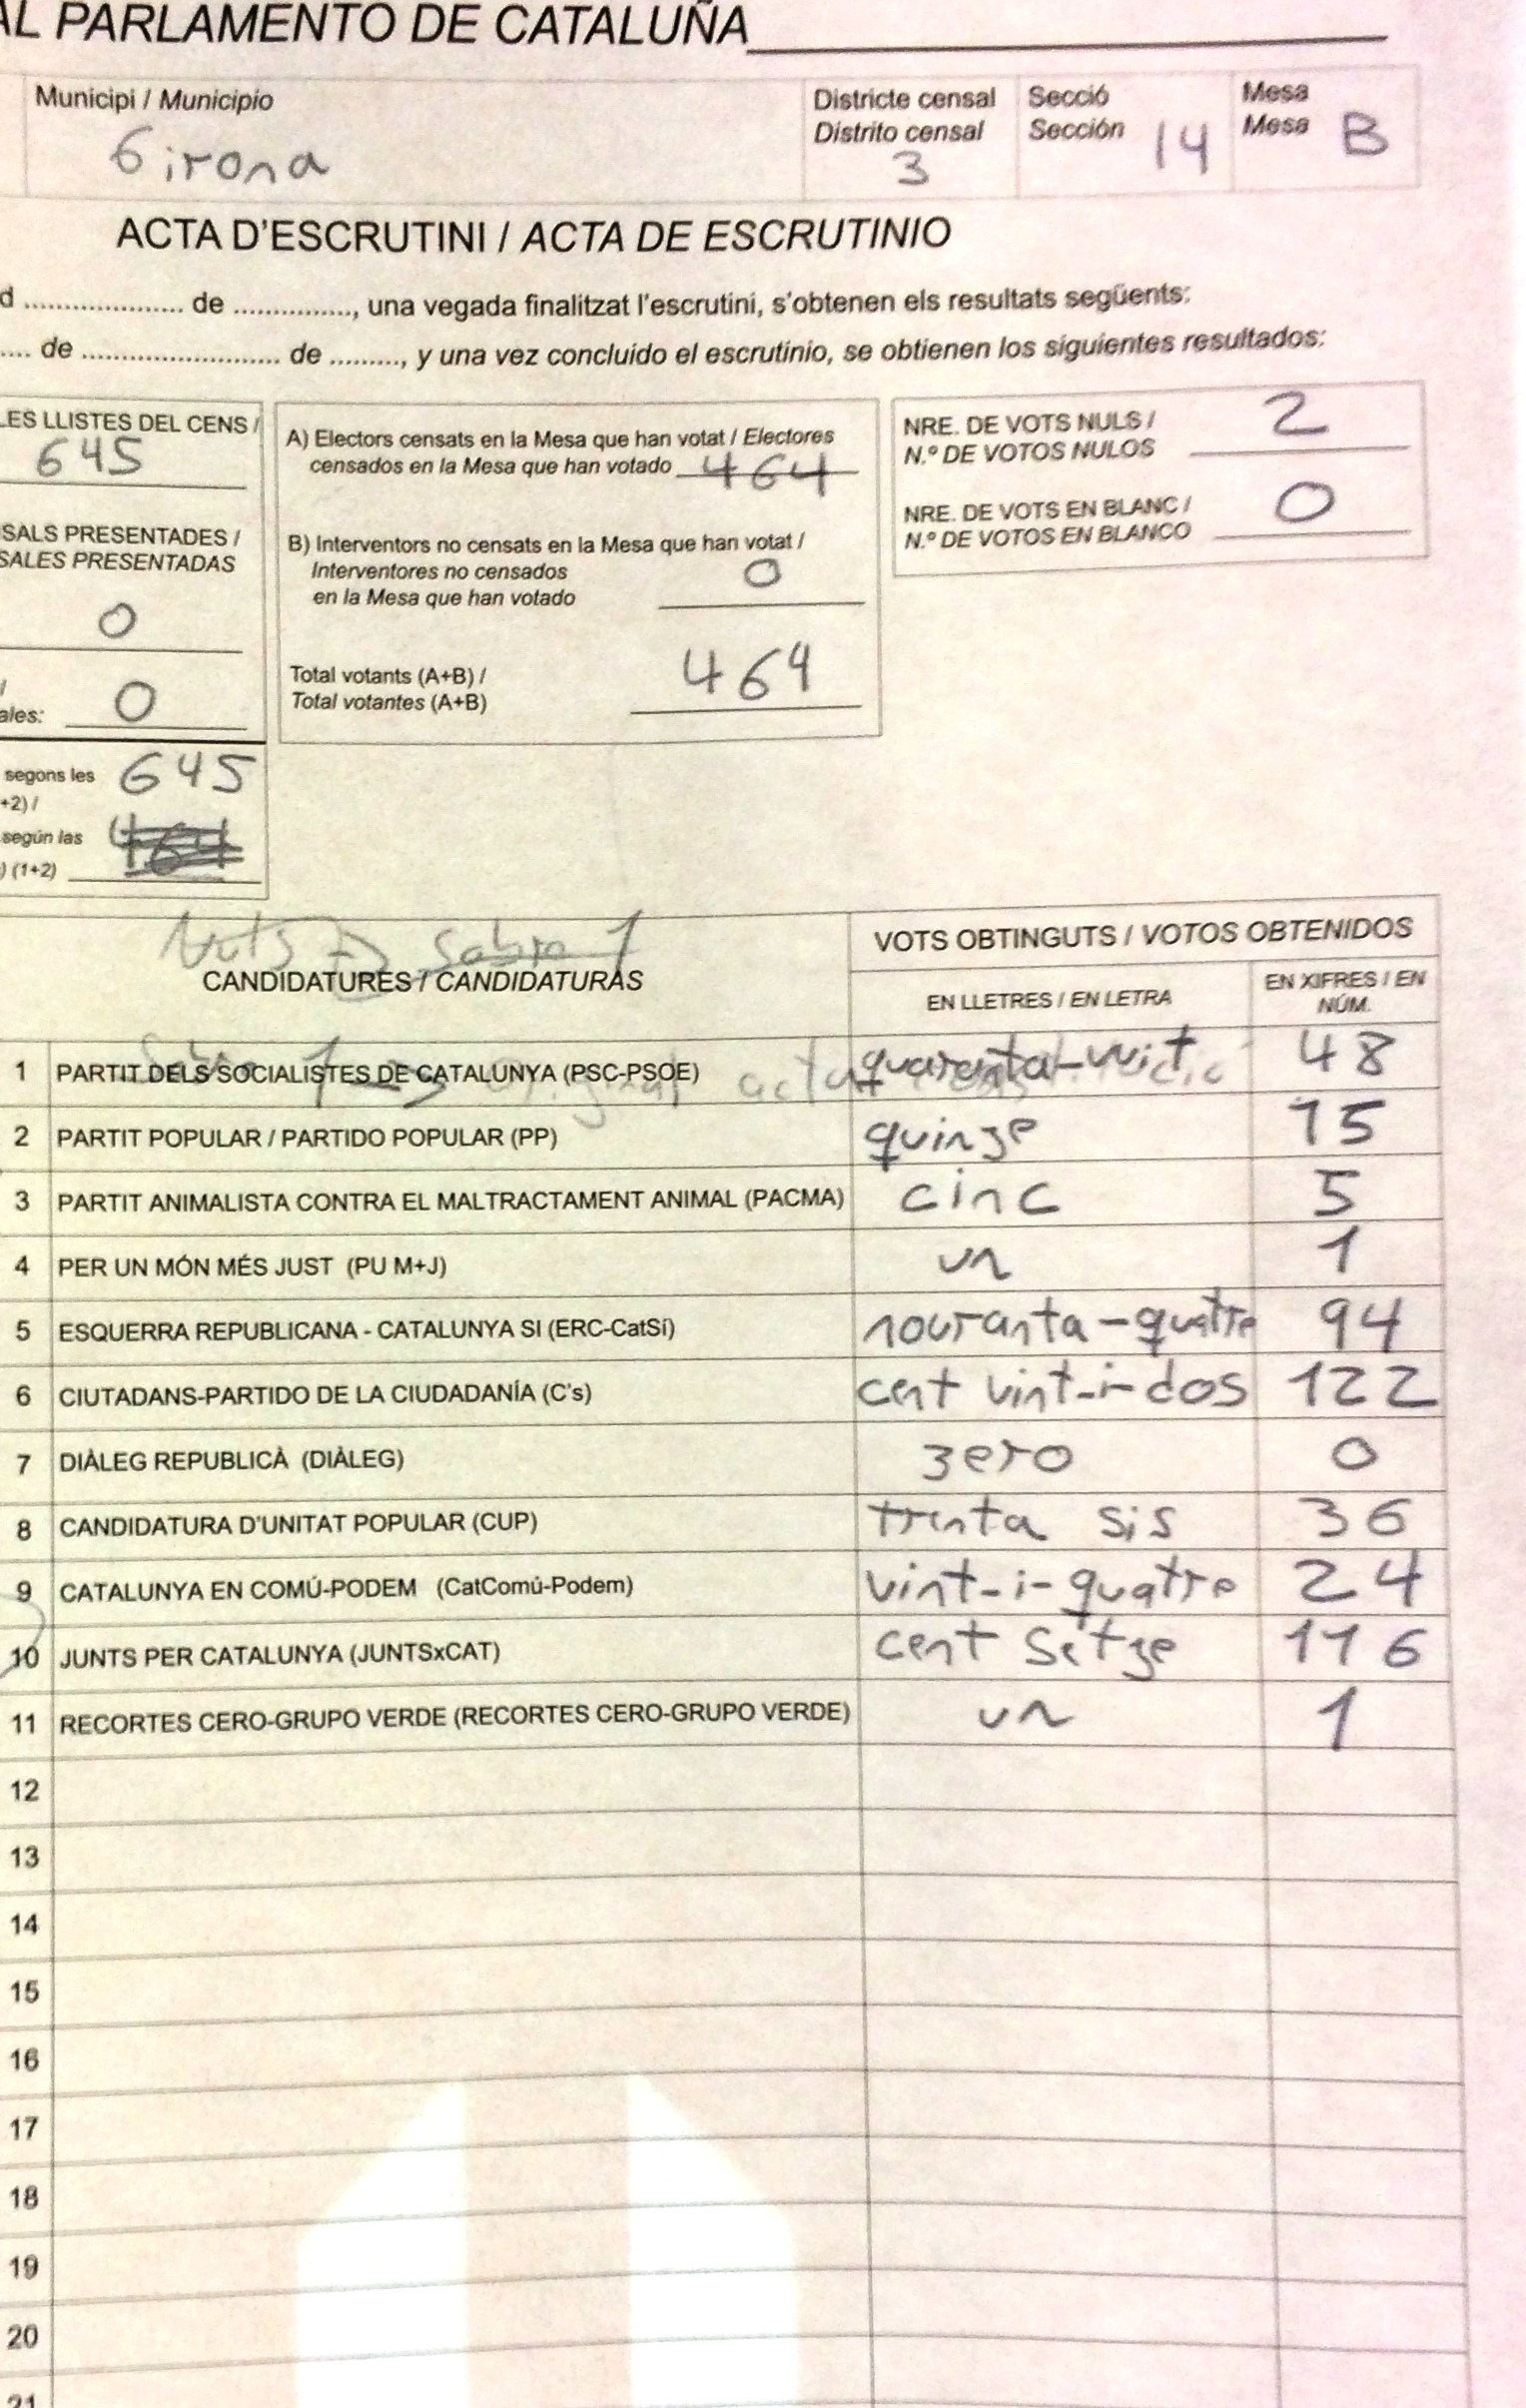 AL PARLAMENTO DE CATALUÑA
Municipi / Municipio
Girona
Districte censal
Distrito censal
3
Secció
Sección 14
Mesa
Mesa B
ACTA D'ESCRUTINI / ACTA DE ESCRUTINIO
d .................... de ..............., una vegada finalitzat l'escrutini, s'obtenen els resultats següents:
.... de ......................... de ........., y una vez concluido el escrutinio, se obtienen los siguientes resultados:
LES LLISTES DEL CENS /
645
SALS PRESENTADES /
SALES PRESENTADAS
0
/
ales: 0
segons les 645
+2) /
según las 464
) (1+2)
A) Electors censats en la Mesa que han votat / Electores
censados en la Mesa que han votado 464
B) Interventors no censats en la Mesa que han votat /
Interventores no censados 0
en la Mesa que han votado
Total votants (A+B) / 464
Total votantes (A+B)
NRE. DE VOTS NULS / 2
N.º DE VOTOS NULOS
NRE. DE VOTS EN BLANC / 0
N.º DE VOTOS EN BLANCO
Vots → Sobre 1
CANDIDATURES / CANDIDATURAS
VOTS OBTINGUTS / VOTOS OBTENIDOS
EN LLETRES / EN LETRA
EN XIFRES / EN
NÚM.
1 PARTIT DELS SOCIALISTES DE CATALUNYA (PSC-PSOE) quaranta-vuit 48
Sobre 1 → Original acta
2 PARTIT POPULAR / PARTIDO POPULAR (PP) quinze 15
3 PARTIT ANIMALISTA CONTRA EL MALTRACTAMENT ANIMAL (PACMA) cinc 5
4 PER UN MÓN MÉS JUST (PU M+J) un 1
5 ESQUERRA REPUBLICANA - CATALUNYA SI (ERC-CatSí) nouranta-quatre 94
6 CIUTADANS-PARTIDO DE LA CIUDADANÍA (C's) cent vint-i-dos 122
7 DIÀLEG REPUBLICÀ (DIÀLEG) zero 0
8 CANDIDATURA D'UNITAT POPULAR (CUP) trenta sis 36
9 CATALUNYA EN COMÚ-PODEM (CatComú-Podem) vint-i-quatre 24
10 JUNTS PER CATALUNYA (JUNTSxCAT) cent setze 116
11 RECORTES CERO-GRUPO VERDE (RECORTES CERO-GRUPO VERDE) un 1
12
13
14
15
16
17
18
19
20
21